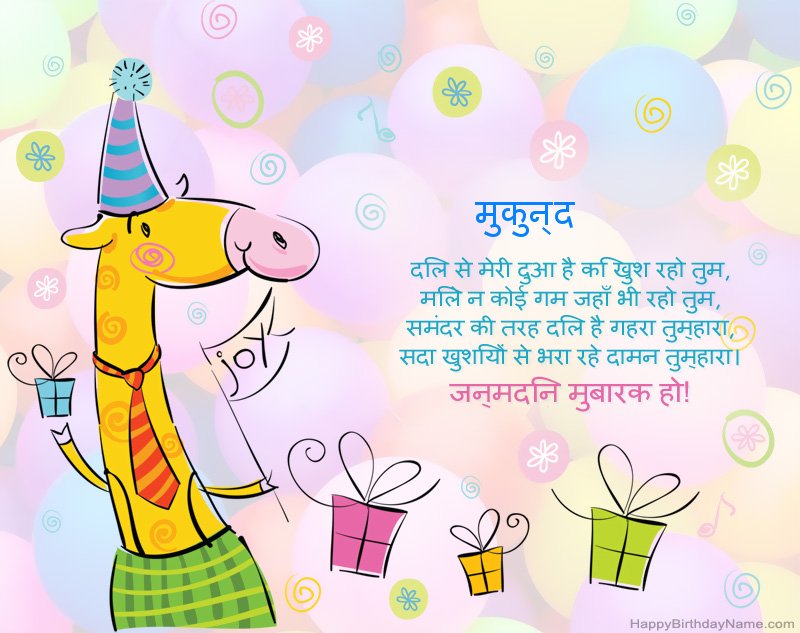 मुकुन्द
दिल से मेरी दुआ है कि खुश रहो तुम,
मिले न कोई गम जहाँ भी रहो तुम,
समंदर की तरह दिल है गहरा तुम्हारा,
सदा खुशियों से भरा रहे दामन तुम्हारा।
जन्मदिन मुबारक हो!
joy
HappyBirthdayName.com